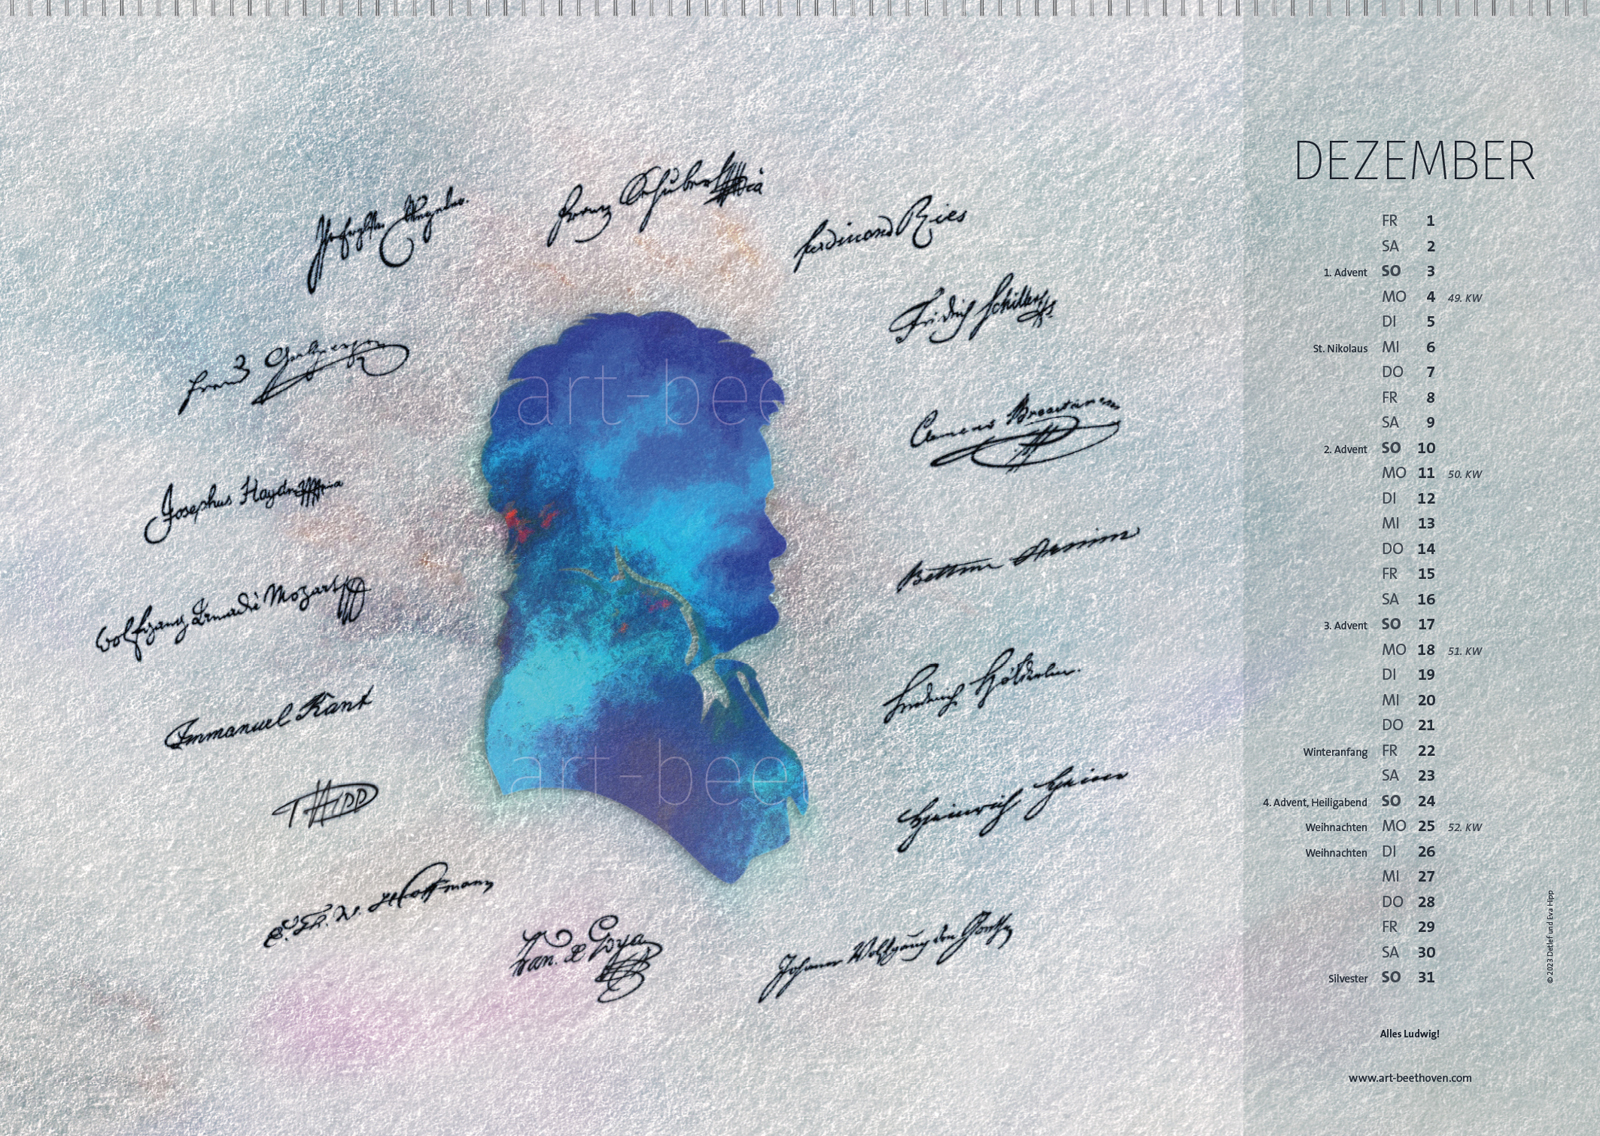 Franz Schubert
Ferdinand Ries
Fridrich Schiller
Franz
Clemens Brentano
Josephus Haydn
Bettine Arnim
Wolfgang Amadè Mozart
Friedrich Hölderlin
Immanuel Kant
Heinrich Heine
HIPP
E. Th. W. Hoffmann
Fran. de Goya
Johann Wolfgang von Goethe
art-bee
art-bee
DEZEMBER
FR 1
SA 2
1. Advent SO 3
MO 4 49. KW
DI 5
St. Nikolaus MI 6
DO 7
FR 8
SA 9
2. Advent SO 10
MO 11 50. KW
DI 12
MI 13
DO 14
FR 15
SA 16
3. Advent SO 17
MO 18 51. KW
DI 19
MI 20
DO 21
Winteranfang FR 22
SA 23
4. Advent, Heiligabend SO 24
Weihnachten MO 25 52. KW
Weihnachten DI 26
MI 27
DO 28
FR 29
SA 30
Silvester SO 31
Alles Ludwig!
www.art-beethoven.com
© 2023 Detlef und Eva Hipp